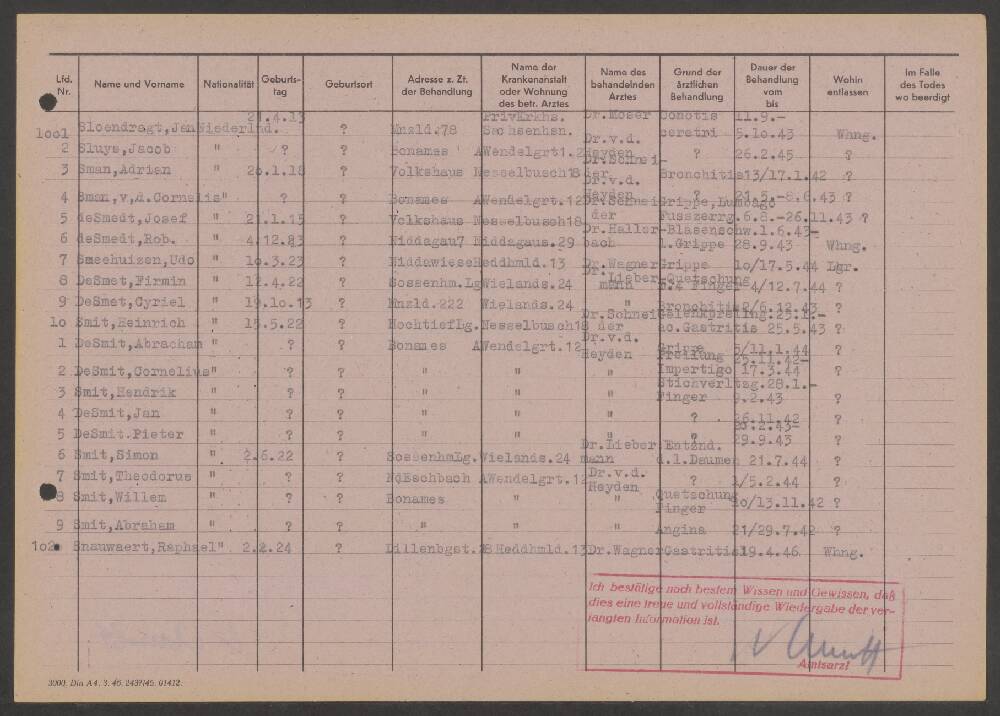 Lfd. Nr. Name und Vorname Nationalität Geburts-tag Geburtsort Adresse z. Zt. der Behandlung Name der Krankenanstalt oder Wohnung des betr. Arztes Name des behandelnden Arztes Grund der ärztlichen Behandlung Dauer der Behandlung vom bis Wohin entlassen Im Falle des Todes wo beerdigt
1001 Sloendregt,Jan Niederlnd. 21.4.13 ? Mnzld.78 PrivKrkhs. Sachsenhsn. Dr.Moser 11.9.- 5.10.43 Whng.
2 Sluys,Jacob " ? ? Bonames AWendelgrt1.2 Dr.v.d. Heyden ? 26.2.45 ?
3 Sman,Adrian " 20.1.18 ? Volkshaus Nesselbusch18 Dr.Schnei-der Bronchitis 13/17.1.42 ?
4 Sman,v,d.Cornelis " ? ? Bonames AWendelgrt.12 Dr.v.d. Heyden ? 21.5.-8.6.43 ?
5 deSmedt,Josef " 21.1.15 ? Volkshaus Nesselbusch18 Dr.Schnei der Grippe,Lumbago Fusszerrg. 6.8.-26.11.43 ?
6 deSmedt,Rob. " 4.12.23 ? Niddagau7 Niddagaus.29 Dr.Haller-bach Blasenschw. l.Grippe 1.6.43- 28.9.43 Whng.
7 Smeehuizen,Udo " 10.3.23 ? Niddawiese Heddhmld.13 Dr.Wagner Grippe 10/17.5.44 Lgr.
8 DeSmet,Firmin " 12.4.22 ? Sossenhm.Lg Wielands.24 Dr.Lieber-mann Quetschung 3.4 Finger 4/12.7.44 ?
9 DeSmet,Cyriel " 19.10.13 ? Mnzld.222 Wielands.24 " Bronchitis 2/6.12.43 ?
10 Smit,Heinrich " 15.5.22 ? HochtiefLg. Nesselbusch18 Dr.Schnei der ac.Gastritis 25.5.43 ?
1 DeSmit,Abracham " ? ? Bonames AWendelgrt.12 Dr.v.d. Heyden Grippe 5/11.1.44 ?
2 DeSmit,Cornelius " ? ? " " " Impertigo 25.11.42- 17.3.44 ?
3 Smit,Hendrik " ? ? " " " Stichverltzg. Finger 28.1.- 9.2.43 ?
4 DeSmit,Jan " ? ? " " " ? 26.11.42 ?
5 DeSmit.Pieter " ? ? " " " " 29.9.43 ?
6 Smit,Simon " 2.6.22 ? SossenhmLg. Wielands.24 Dr.Lieber mann Entznd. d.l.Daumen 21.7.44 ?
7 Smit,Theodorus " ? ? NdEschbach AWendelgrt.12 Dr.v.d. Heyden ? 1/5.2.44 ?
8 Smit,Willem " ? ? Bonames " " Quetschung Finger 10/13.11.42 ?
9 Smit,Abraham " ? ? " " " Angina 21/29.7.42 ?
102 Snauwaert,Raphael " 2.2.24 ? Dillenbgst.28 Heddhmld.13 Dr.Wagner Gastritis 19.4.46. Whng.
Ich bestätige nach bestem Wissen und Gewissen, daß
dies eine treue und vollständige Wiedergabe der ver-
langten Information ist.
Amtsarzt
3000. Din A 4. 3. 46. 2437/45. 01412.